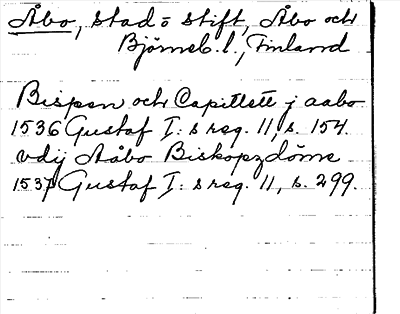 Åbo, stad o stift, Åbo och
Björneb. l., Finland
Bispen och Capittett j aabo
1536 Gustaf I: s reg. 11, s. 154
vdij Aåbo Biskopzdöme
1537 Gustaf I: s reg. 11, s. 299.